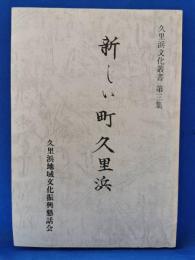 久里浜文化叢書 第三集
新しい町久里浜
久里浜地域文化振興懇話会